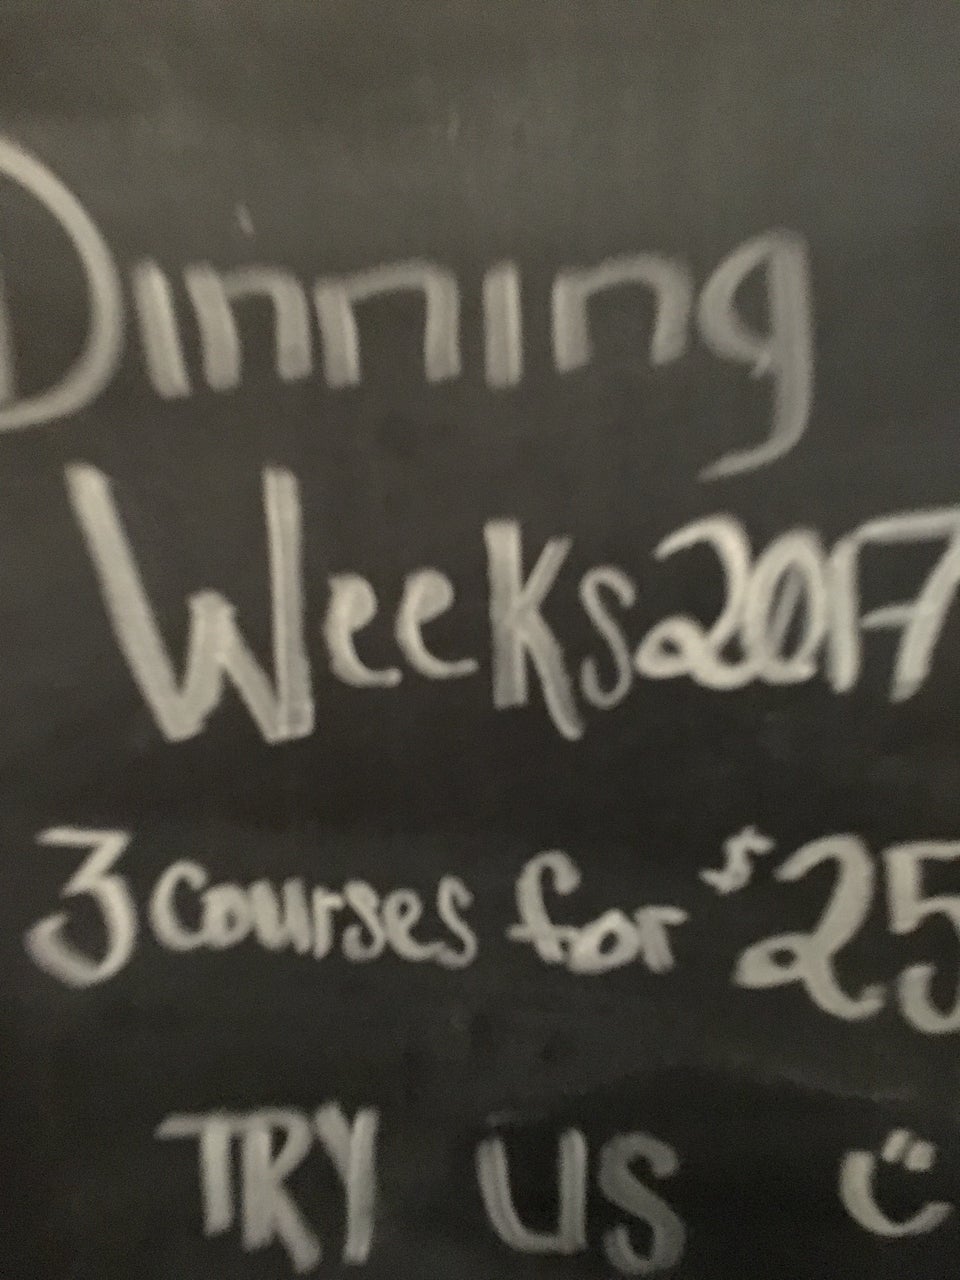 Dinning
Weeks 2017
3 courses for $25
TRY US